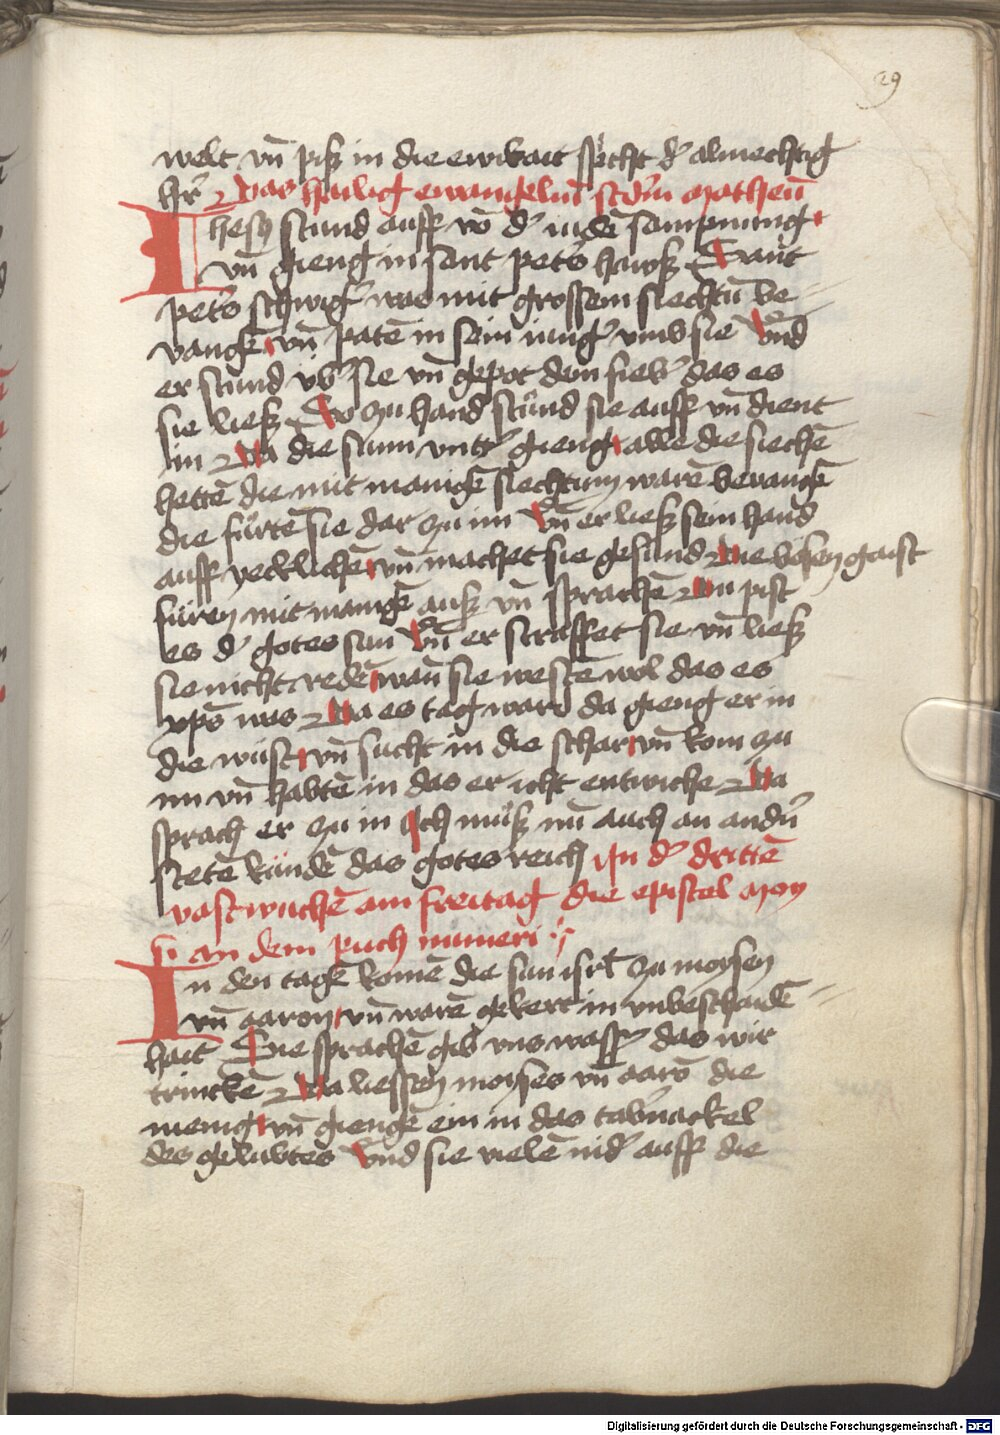 29
welt vn̄ piß in die ewikait spͤcht dʾ almechtig
hrʾ Das heilig ewangeliū scdʾm Matheū
Ihesꝯ stund auff vō dʾ iudē sampnung
vn̄ gieng in sant petʾs hawß Sant
petʾs schwigʾ was mit grossem siechtū be
vangē vn̄ patē in sein iungʾ vmb sie Vnd
er stund vbʾ sie vn̄ gepot dem siebʾ das es
sie ließ Do zu hand stund sie auff vn̄ dient
im Da die sunn vntʾ gieng alle die siechē
hettē die mit manigē siechtum warē bevangē
die fürtē sie dar zu im Vn̄ er ließ sein hand
auff yeclichē vn̄ machet sie gesund Die bösen gaist
füren mit manigē auß vn̄ sprachē Du pist
es dʾ gotes sun Vn̄ er straffet sie vn̄ ließ
sie nicht redē wan̄ sie westē wol das es
xp̄s was Da es tag ward da gieng er in
die wüst vn̄ sucht in die schar vn̄ kom zu
im vn̄ habtē in das er icht entwiche Da
sprach er zu in Ich muß nū auch an andʾn
stetē kündē das gotes reich In dʾ drittē
vastwuchē am freitag die epistel Moy
si an dem puch numeri
In den tagē komē die sun isrl̄ zu moysen
vn̄ aaron vn̄ warē gekert in vnbeschaidē
hait Sie sprachē gib vns wassʾ das wir
trinckē Da liessen moyses vn̄ aarō die
menig vn̄ giengē ein in das tabʾnackel
des gelubtes Vnd sie vielē nidʾ auff die
Digitalisierung gefördert durch die Deutsche Forschungsgemeinschaft - DFG